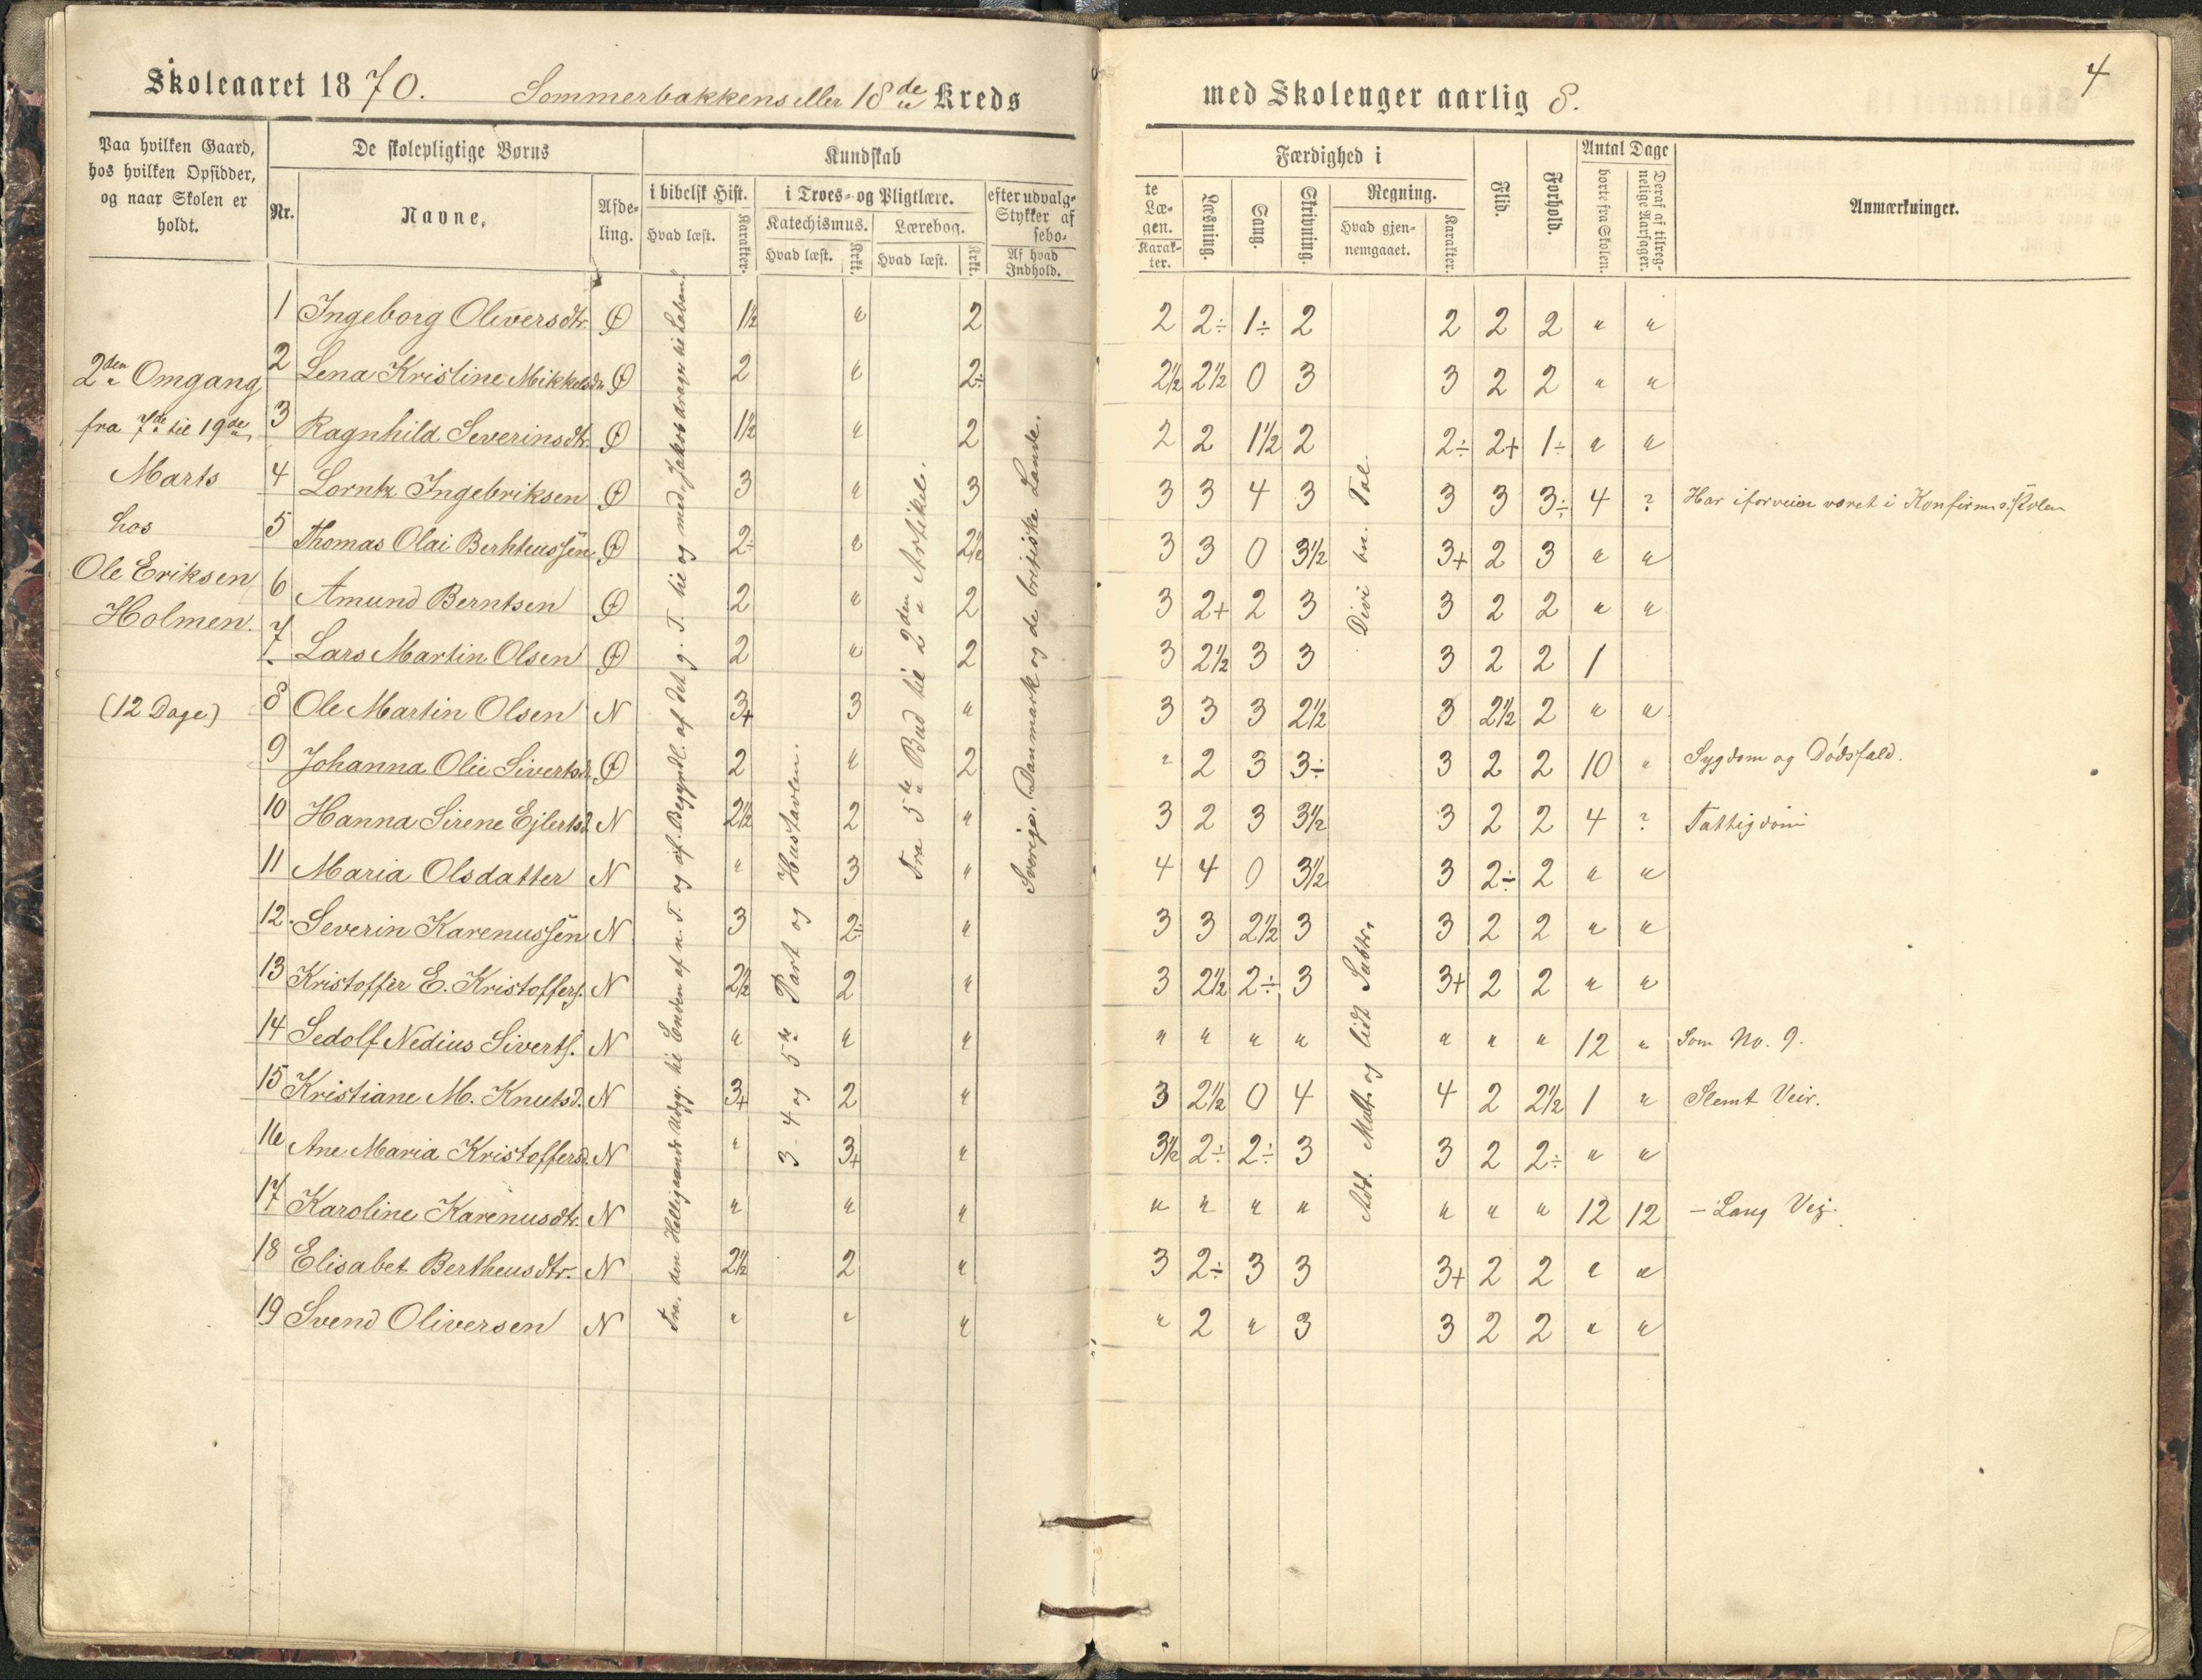 Skoleaaret 1870. Sommerbakkens eller 18de Kreds med Skolenger aarlig 8.
4
Paa hvilken Gaard, hos hvilken Opsidder, og naar Skolen er holdt.
De skolepligtige Børns
Nr. Navne. Afdeling.
Kundskab
i bibelsk Hist. Hvad læst. Karakter.
i Troes- og Pligtlære.
Katechismus. Hvad læst. Krkt.
Lærebog. Hvad læst. Krkt.
efter udvalg- Stykker af sebo-
Af hvad Indhold.
te Læ- gen. Karak- ter.
Færdighed i
Læsning. Sang. Skrivning.
Regning. Hvad gjen- nemgaaet. Karakter.
Flid. Forhold.
Antal Dage
borte fra Skolen. Deraf af tilreg- nelige Aarsager.
Anmærkninger.
2den Omgang
fra 7de til 19de
Marts
hos
Ole Eriksen
Holmen.
(12 Dage)
1 Ingeborg Oliversdtr. Ø 1½ " 2 2 2÷ 1÷ 2 2 2 2 " "
2 Lena Kristine Mikkelsdtr. Ø 2 " 2÷ 2½ 2½ 0 3 3 2 2 " "
3 Ragnhild Severinsdtr. Ø 1½ " 2 2 2 1½ 2 2÷ 2+ 1÷ " "
4 Lorntz Ingebriksen Ø 3 " 3 3 3 4 3 3 3 3÷ 4 ? Har iforveien været i Konfirm.s.skolen
5 Thomas Olai Berhteussen Ø 2÷ " 2½ 3 3 0 3½ 3+ 2 3 " "
6 Amund Berntsen Ø 2 " 2 3 2+ 2 3 3 2 2 " "
7 Lars Martin Olsen Ø 2 " 2 3 2½ 3 3 3 2 2 1
8 Ole Martin Olsen N 3+ 3 " 3 3 3 2½ 3 2½ 2 " "
9 Johanna Olie Sivertsdr. Ø 2 " 2 " 2 3 3÷ 3 2 2 10 " Sygdom og Dødsfald.
10 Hanna Sirene Ejlertsd. N 2½ 2 " 3 2 3 3½ 3 2 2 4 ? Fattigdom
11 Maria Olsdatter N " 3 " 4 4 0 3½ 3 2÷ 2 " "
12. Severin Karenussen N 3 2÷ " 3 3 2½ 3 3 2 2 " "
13 Kristoffer E. Kristoffers. N 2½ 2 " 3 2½ 2÷ 3 3+ 2 2 " "
14 Sedolf Nedius Siverts. N " " " " " " " " " " 12 " Som No. 9.
15 Kristiane M. Knutsd. N 3+ 2 " 3 2½ 0 4 4 2 2½ 1 " Slemt Veir.
16 Ane Maria Kristoffersd. N " 3+ " 3½ 2÷ 2÷ 3 3 2 2÷ " "
17 Karoline Karenusdtr. N " " " " " " " " " " 12 12 – Lang Vej.
18 Elisabet Bertheusdtr. N 2½ 2 " 3 2÷ 3 3 3+ 2 2 " "
19 Svend Oliversen N " " " " 2 " 3 3 2 2 " "
Fra, den Helligaands Udgy. til Enden af n. T. og af Begyndl. af det g. T. til og med, Jakob drager til Laban.
3 - 4 og 5te Part og Hustavlen.
Fra 5te Bud til 2den Artikel.
Sverige, Danmark og de britiske Lande.
Add. Mult. og lidt Subtr.
Divi bn. Tal.